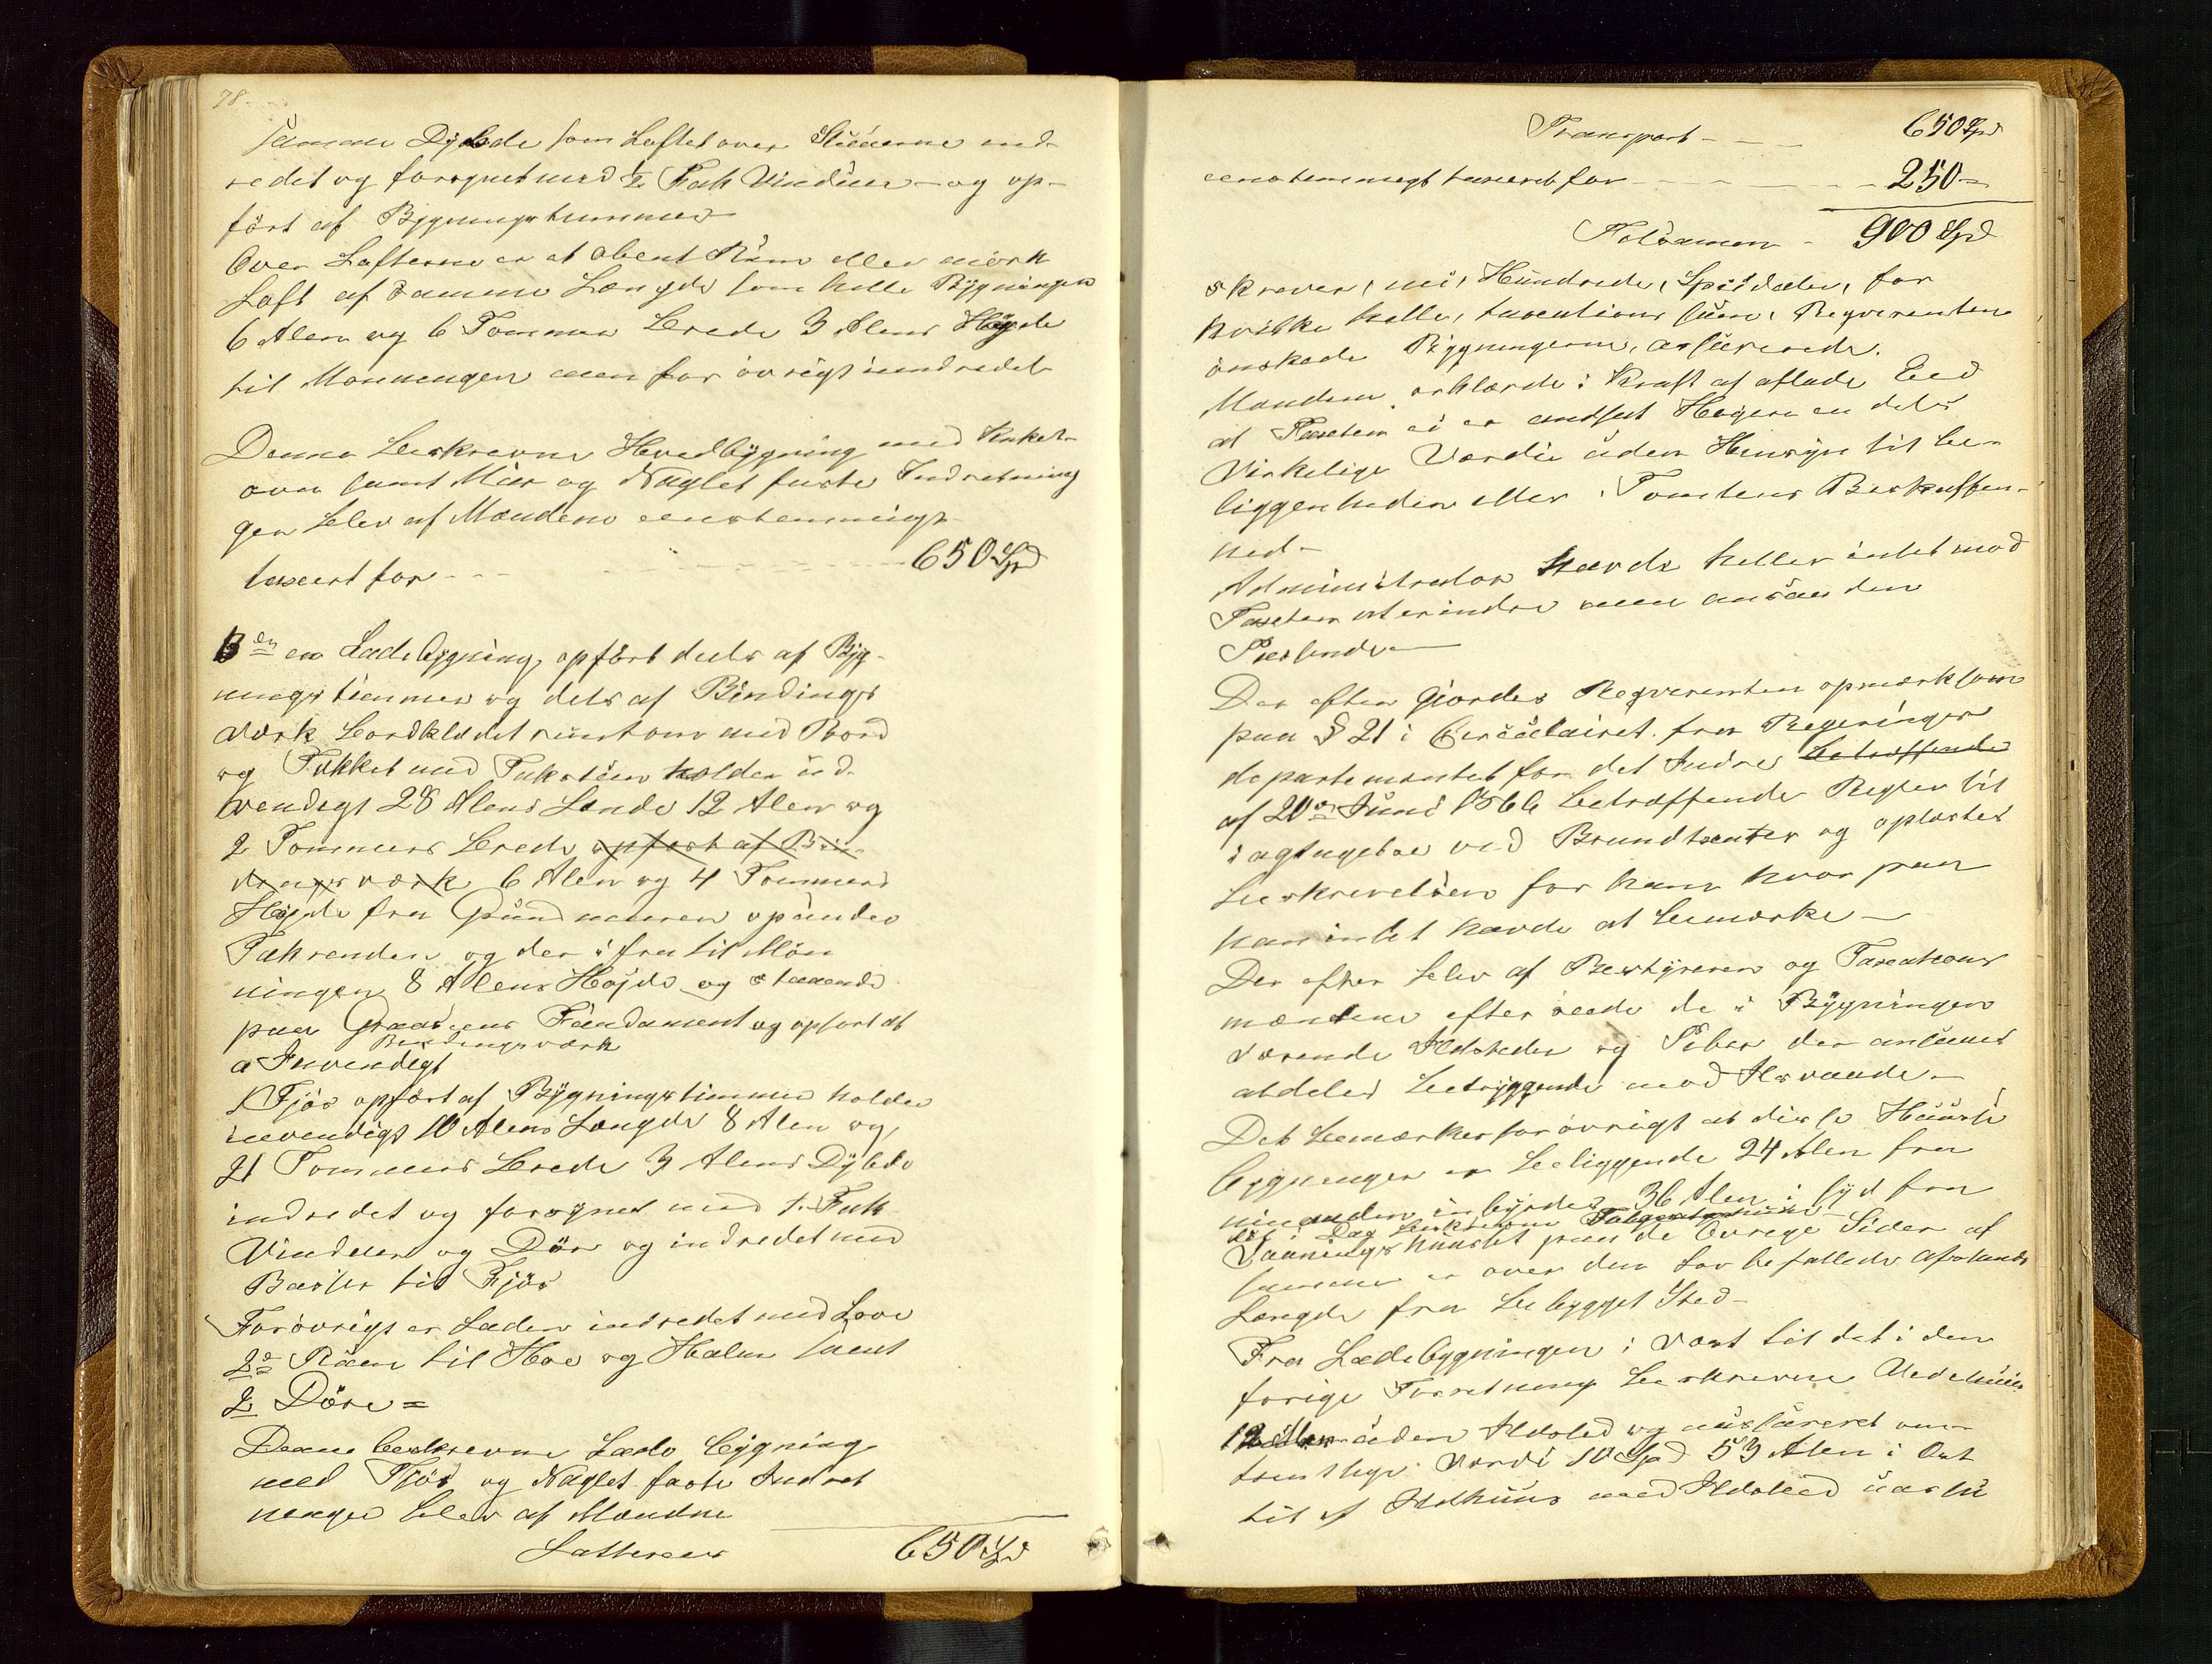 78.
samme Dybde som Loftet over Stuerne ind-
redet og forsynet med ½ Fah Vinduer - og op-
fört af Bygningstømmer
Over Lofterne er et abent Rum eller mörk
Loft af samme Længde som hele Bygningen
6 Alen og 6 Tommer brede 3 Alens Høyde
til Mønningen men for övrigt uindredet
Denne beskrevne Hovedbygning med Kakel-
ovn samt Mur og Naglet faste Indretning
ger blev af Mændene eenstemmigt
taxeert for - - - - - - - - - - 650 Spd
B den en Ladebygning, opfört deels af Byg-
ningstiemmer og dels af Bindings
værk bordklædet rundtom med Bord
og Tækket med Taksten holder ud-
vendigt 28 Alens Lænde 12 Alen og
2 Tommers brede opfort af Bin-
dingsværk 6 Alen og 4 Tommers
Høyde fra Grundmuren opunder
Takrenden og der ifra til Møn
ningen 8 Alens Højde og staaende
paa Graastens Fundament og opfort at
Bindingsværk
a Invendigt
1 Fjös opfört af Bygningstimmer holder
invendigt 10 Alens Længde 8 Alen og
21 Tommers brede 3 Alens Dybde
indredet og forsynet med 1. Fah
Vinduer og Dör og indredet med
Baaser til Fjös
Forövrigt er Laden indredet med Love
2de Rum til Höe og Halm samt
2 Döre =
Denne beskrevne Lade bygning
med Fjös og Naglet faste Indret
ninger blev af Mændne
Latteres 650 Spd
Transport - - - 650 Spd
eenstemmigt taxeret for - - - - - - 250 -
Tilsamen - 900 Spd
skrever, ni, Hundrede, Spesidaler, for
hvilke hele, taxations sum, Reqverenten
önskede Bygningerne, assurerede.
Mændene erklærde i kraft af aflade Eed
at Taxten ei er andsat Højere en dets
Virkelige Værdie uden Hensyn til be-
liggenheden eller Tomtens Beskaffen-
hed -
Administrator havde heller intet mod
Taxten at erindre men ansaa den
Passende -
Der efter Giordes Reqverenten opmærksom
paa § 21 i Cirkulairet fra Regerings
departementet for det Indre betræffende
af 20de Juni 1866 betræffende Regler til
iagtagelse ved Brandtaxter og oplæstes
beskrivelsen for ham hvor paa
han intet havde at bemærke -
Der efter blev af Bestyreren og Taxations
mændene efterseede de i Bygningen
værende Ildsteder og Piber der ansaaes
aldeles betryggende mod Ilsvaade -
Det bemærkes for øvrigt at disse Huusse
bygninger er beliggende 24 Alen fra
hinanden inbyrdes 36 Alen i Syd fra
det i Dag beskrevne
Vaaningshuuset paa de övrege Sider af
samme er over den for befallede afstands
Længde fra bebygget Sted -
Fra Ladebygningen i Vest til det i den
forige Forretning beskrevne Vedehuus
12 Alen uden Ildsted og uassureret om-
trentlige Værdi 10 Spd 53 Alen i Ost
til et Ildhuus med Ildsted uassu